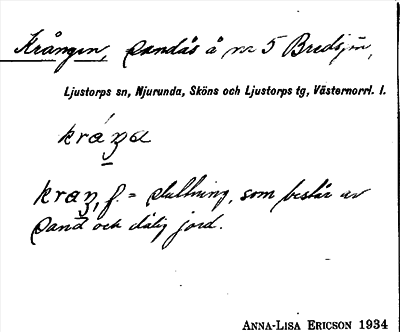 Krången, sandås å nr 5 Bredsjön,
Ljustorps sn, Njurunda, Sköns och Ljustorps tg, Västernorrl. l.
f. = sluttning, som består av
sand och dålig jord.
ANNA-LISA ERICSON 1934